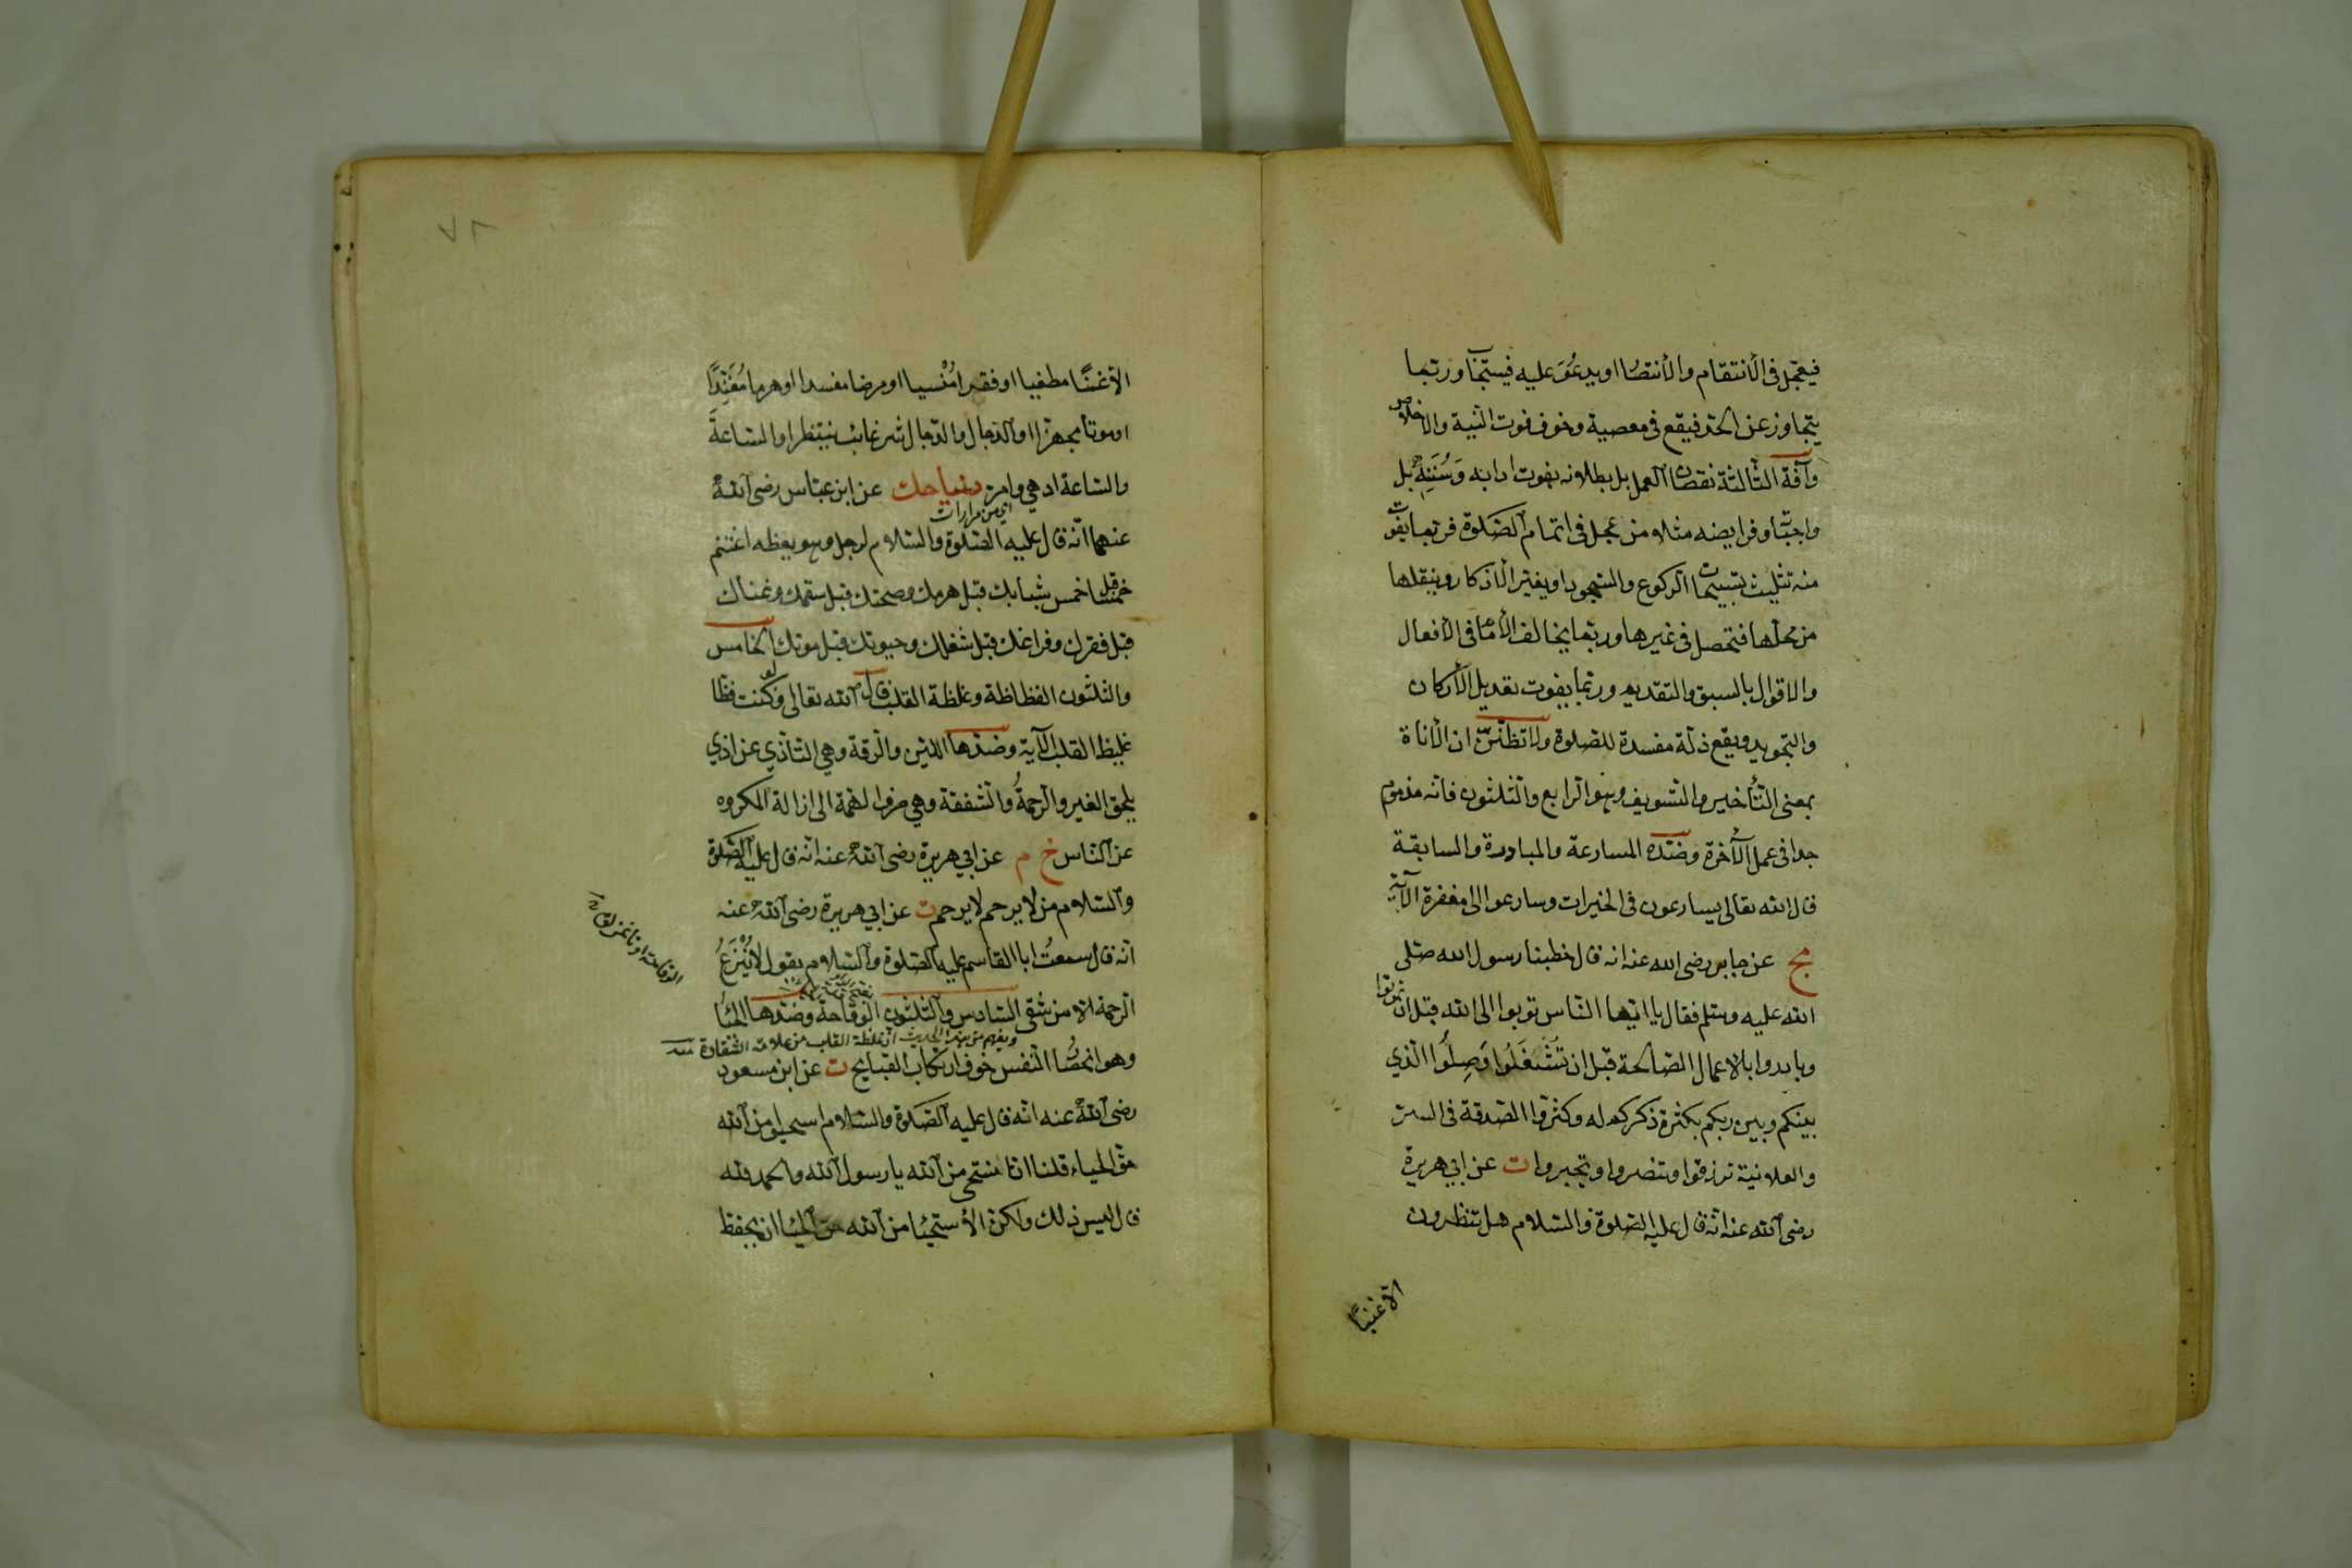 فيعجل في الانتقام والانتصار او يدعو عليه فيستجاب وربما
يتجاوز عن الحد فيقع في معصية وخوف فوت النية والاخلاص
وآفة الثالثة نقصان العمل بل بطلانه بفوت ادابه وسننه بل
واجباته وفرايضه مثلا من عجل في اتمام الصلوة فربما يفوت
منه تثليث تسبيحات الركوع والسجود او يغير الاذكار وينقلها
من محلها فتحصل في غيرها وربما يخالف الامام في الافعال
والاقوال بالسبق والتقديم وربما يفوت تعديل الاركان
والتجويد ويقع ذلة مفسدة للصلوة ولا تظنن ان الاناة
بمعنى التأخير والتسويف وهو الرابع والثلثون فانه مذموم
جدا في عمل الآخرة وضده المسارعة والمبادرة والمسابقة
قال الله تعالى يسارعون في الخيرات وسارعوا الى مغفرة الآية
مج عن جابر رضى الله عنه انه قال خطبنا رسول الله صلى
الله عليه وسلم فقال يا ايها الناس توبوا الى الله قبل ان تموتوا
وبادروا بالاعمال الصالحة قبل ان تشغلوا وصلوا الذي
بينكم وبين ربكم بكثرة ذكركم له وكثرة الصدقة في السر
والعلانية ترزقوا وتنصروا وتجبروا ت عن ابي هريرة
رضى الله عنه انه قال عليه الصلوة والسلام هل تنظرون
الا غنيا
٧٨
الا غنًا مطغيا او فقرا مُنْسيا او مرضا مفسدا او هرما مُفَنِّدًا
او موتا مجهزا او الدجال والدجال شر غائب ينتظر او الساعةَ
والساعة ادهي وامر دنيا حك عن ابن عباس رضى الله
اي من مرارات
عنهما انه قال عليه الصلوة والسلام لرجل وهو يعظه اغتنم
خمسا قبل خمس شبابك قبل هرمك وصحتك قبل سقمك وغناك
قبل فقرك وفراغك قبل شغلك وحيوتك قبل موتك الخامس
والثلثون الفظاظة وغلظة القلب قال الله تعالى ولو كنت فظا
غليظ القلب الآية وضدها اللين والرقة وهي التأذي عن اذي
يلحق الغير والرحمةُ والشفقة وهي صرف الهمة الى ازالة المكروه
عن الناس خ م عن ابي هريرة رضى الله عنه انه قال عليه الصلوة
والسلام من لا يرحم لا يرحم ت عن ابي هريرة رضى الله عنه
انه قال سمعتُ ابا القاسم عليه الصلوة والسلام يقول لا يُنْزَعُ
الرحمة الا من شقى السادس والثلثون الوقاحة وضدها الحياء
ويفهم من هذا الحديث ان غلظة القلب من علامة الشقاوة منه
وهو انحصار النفس خوف ارتكاب القبايح ت عن ابن مسعود
رضى الله عنه انه قال عليه الصلوة والسلام استحيوا من الله
حق الحياء قلنا انا نستحي من الله يا رسول الله والحمد لله
قال ليس ذلك ولكن الاستحياء من الله حق الحياء ان يحفظ